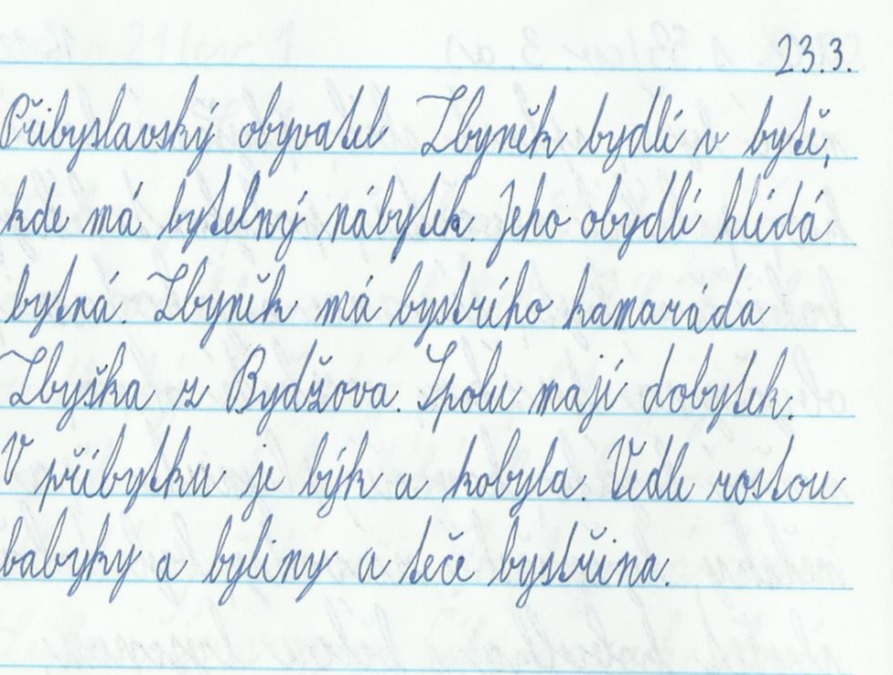 23.3.
Přibyslavský obyvatel Zbyněk bydlí v bytě,
kde má bytelný nábytek. Jeho obydlí hlídá
bytná. Zbyněk má bystrého kamaráda
Zbyška z Bydžova. Spolu mají dobytek.
V příbytku je býk a kobyla. Vedle rostou
babyky a byliny a teče bystřina.